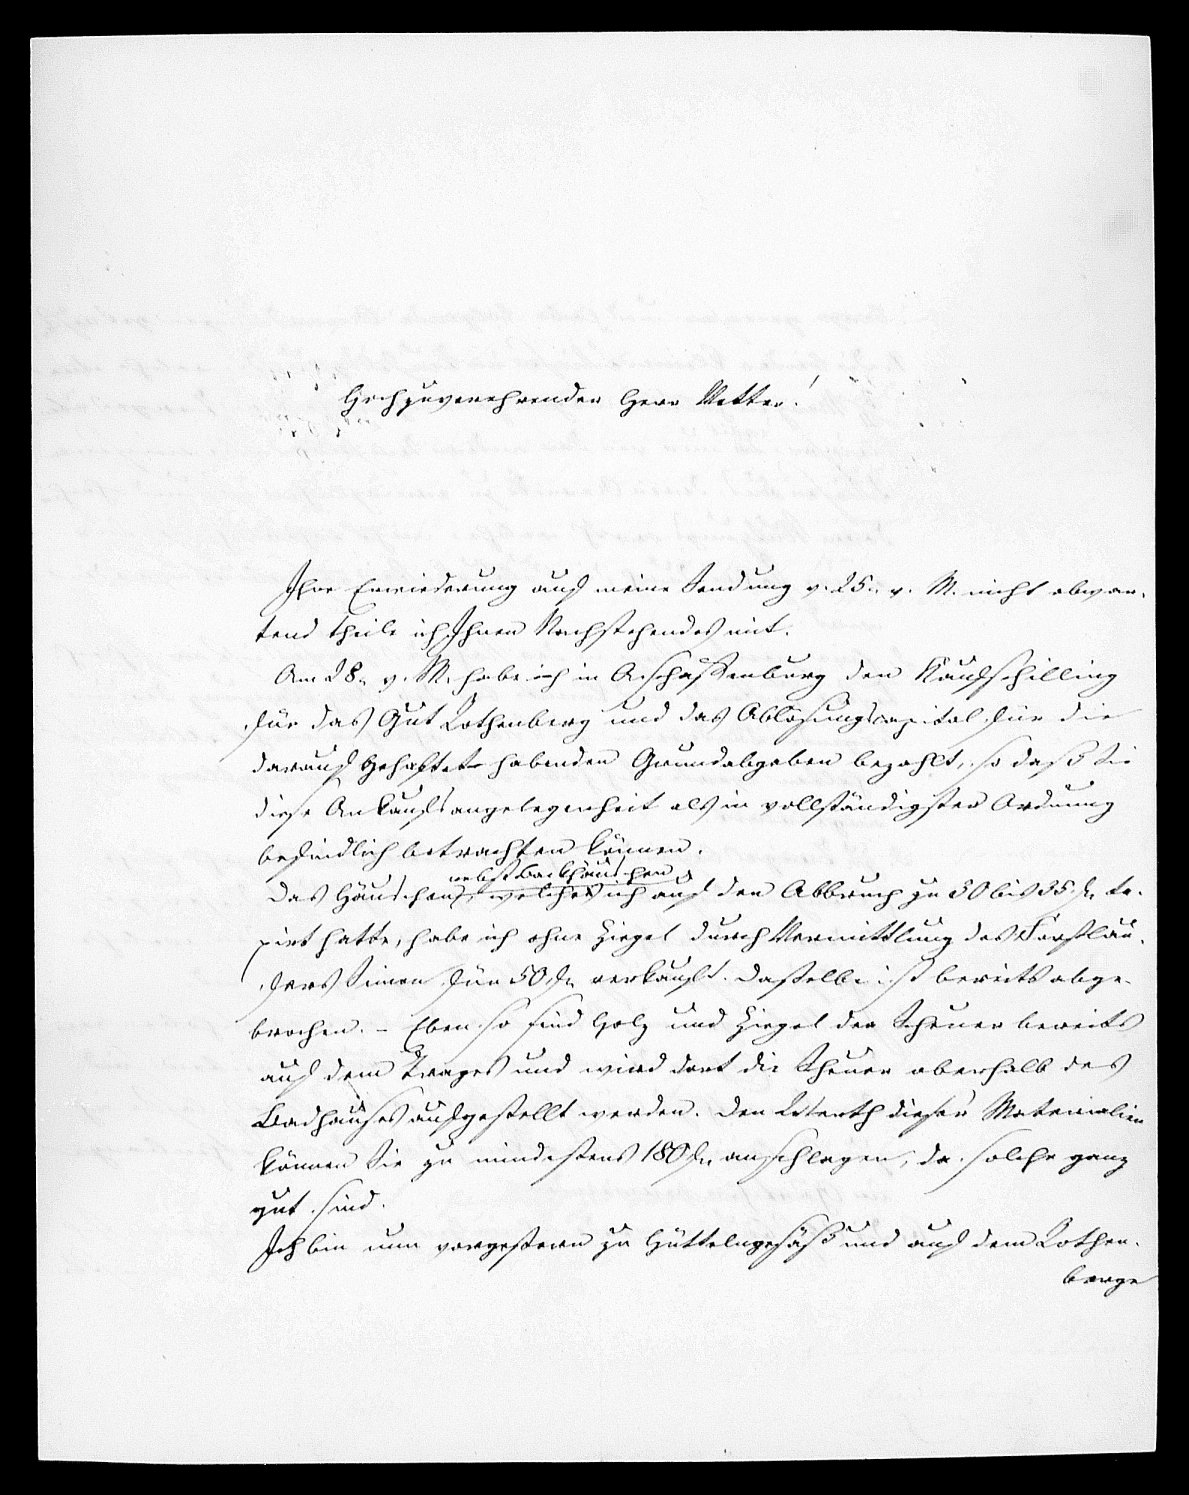 Hochzuverehrender Herr Vetter!
Ihre Erwiederung auf meine Sendung v. 25. v. M. nicht abwar-
tend theile ich Ihnen Nachstehendes mit.
Am 28. v. M. habe ich in Aschaffenburg den Kaufschilling
für das Gut Rothenberg und das Ablösungscapital für die
darauf gehaftet habenden Grundabgaben bezahlt, so daß Sie
diese Ankaufsangelegenheit als in vollständigster Ordnung
befindlich betrachten können.
nebst Backhäuschen
Das Häuschen, welches ich auf den Abbruch zu 30 bis 35 f. ta-
xirt hatte, habe ich ohne Ziegel durch Vermittlung des Forstläu-
fers Simon für 50 f. verkauft. Dasselbe ist bereits abge-
brochen. – Eben so sind Holz und Ziegel der Scheuer bereits
auf dem Trages und wird dort die Scheuer oberhalb des
Badhauses aufgestellt werden. Den Werth dieser Materialien
können Sie zu mindestens 180 f. anschlagen, da solche ganz
gut sind.
Ich bin nun vorgestern zu Hüttelngesäß und auf dem Rothen-
berge